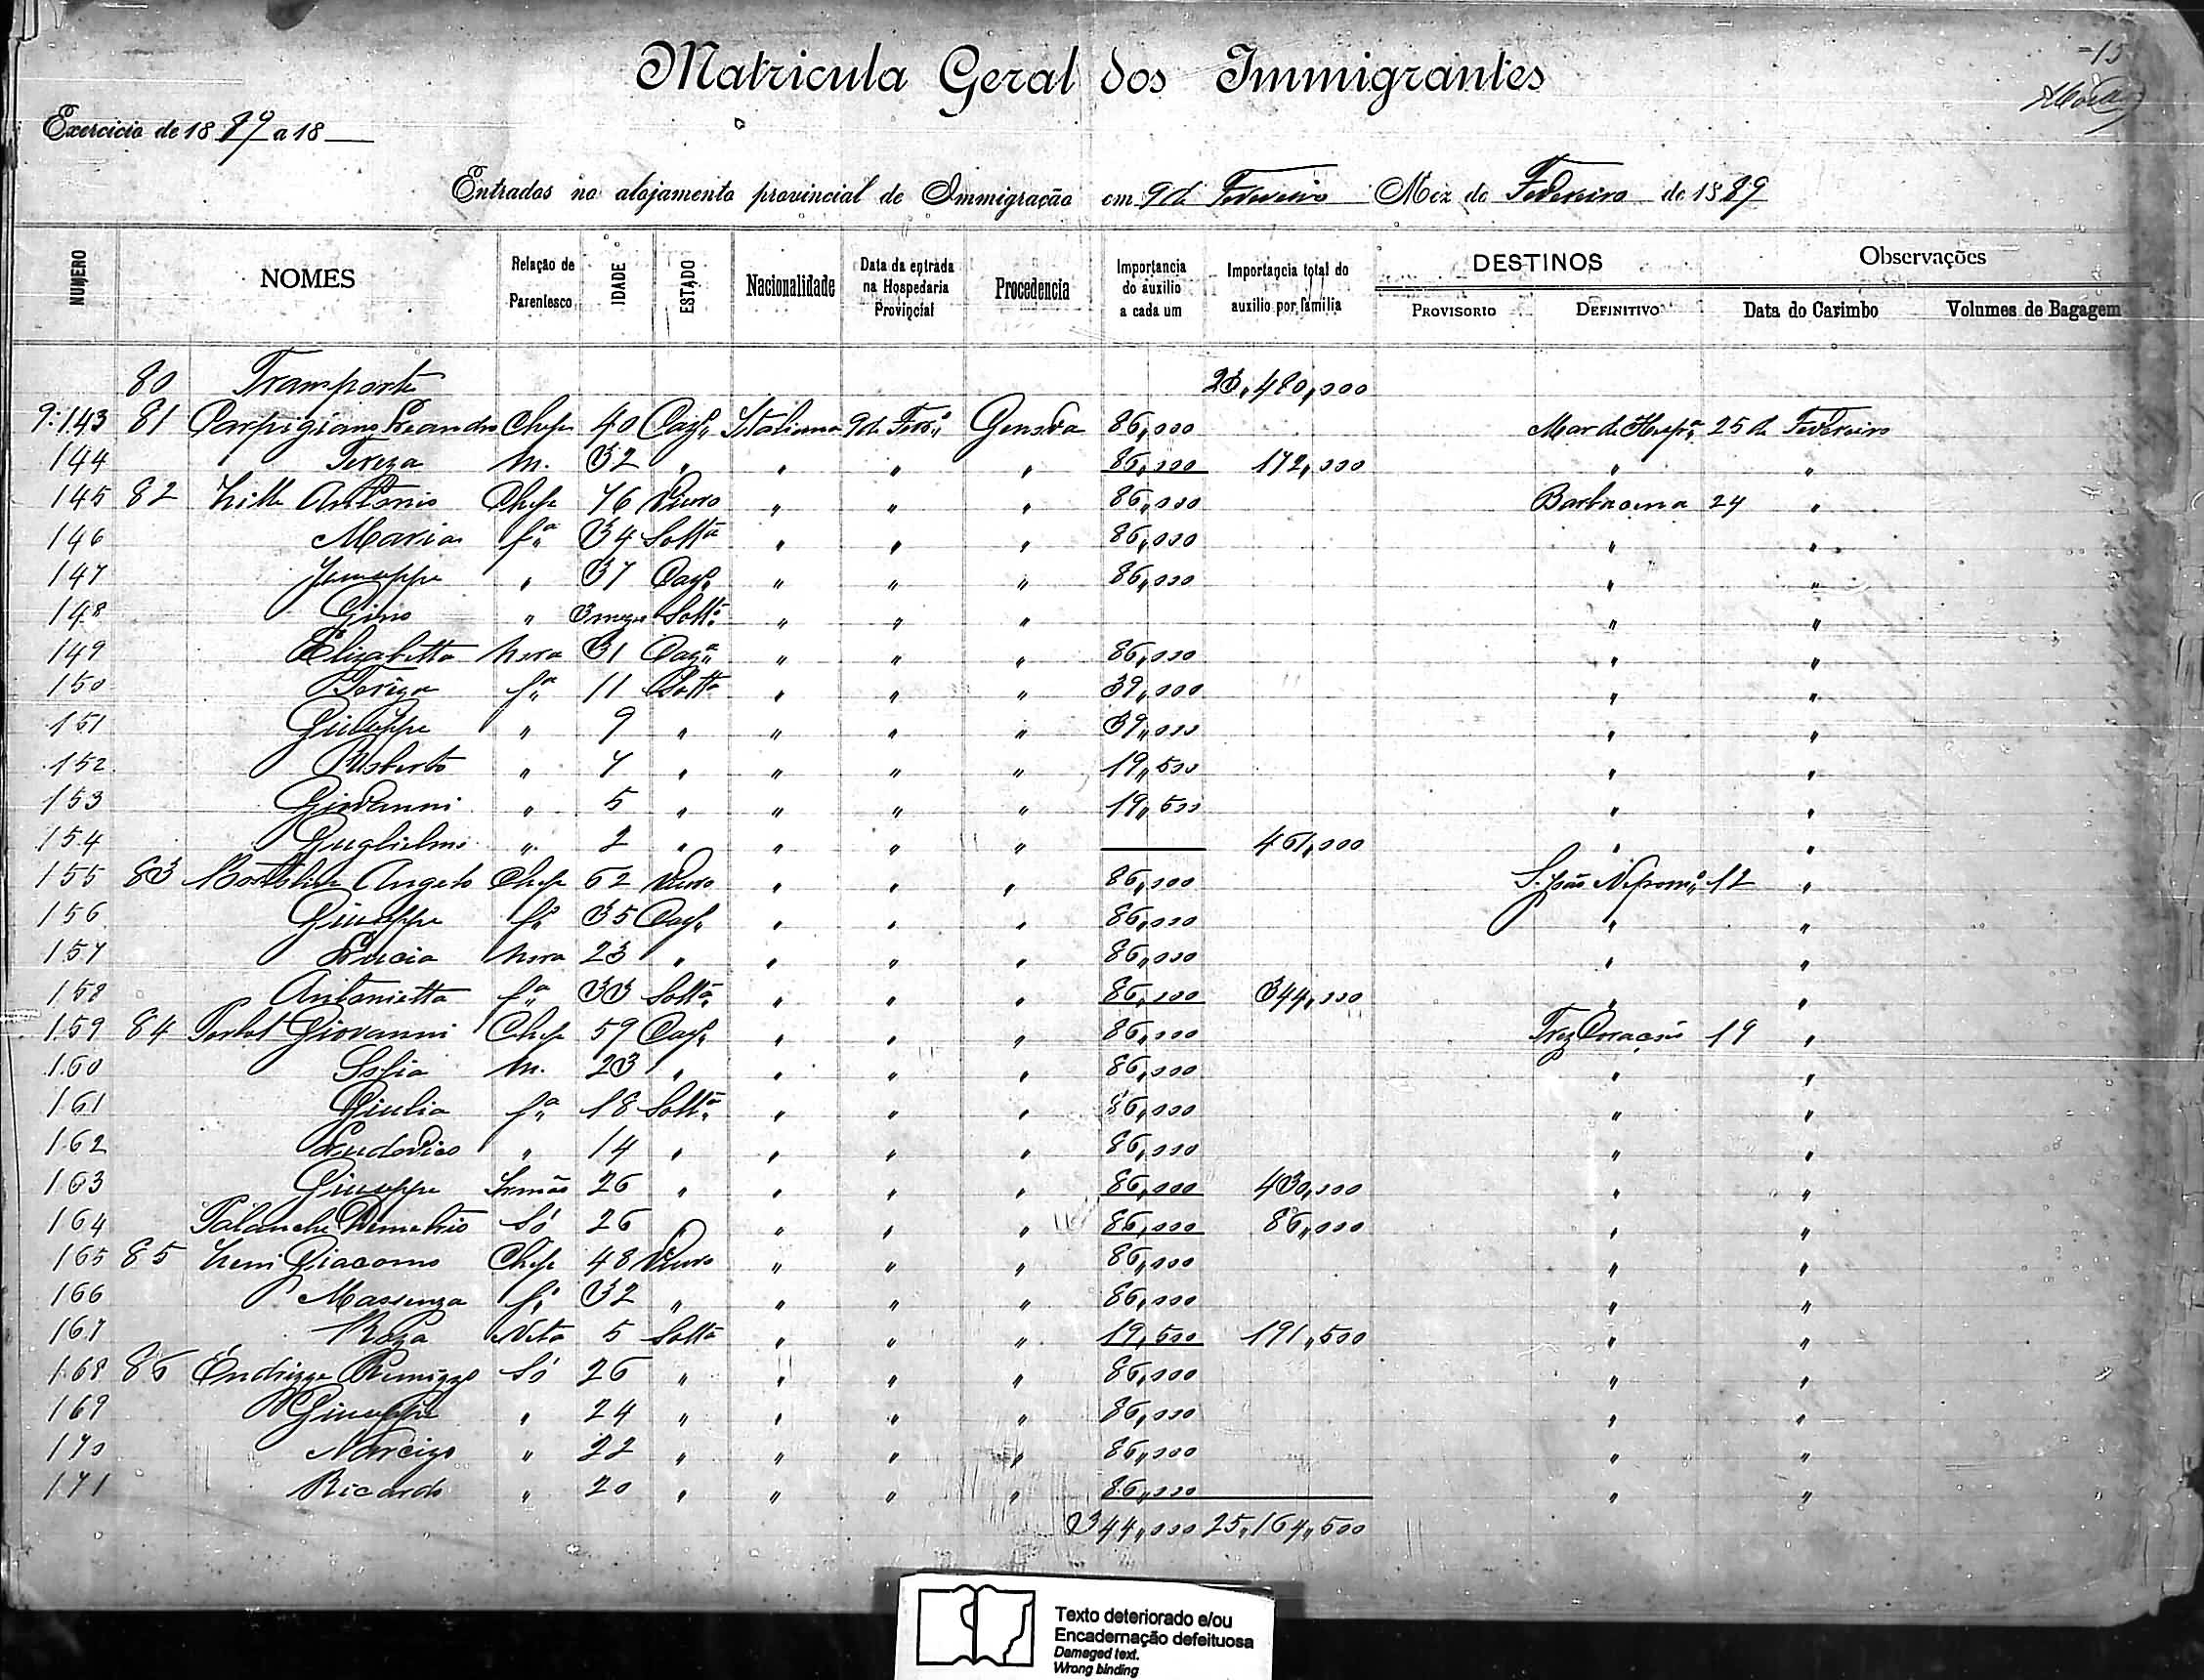 -15
Matricula Geral dos Immigrantes
Exercicio de 1889 a 18
Entrados no alojamento provincial de Immigração em 9 de Fevereiro Mez de Fevereiro de 1889
NUMERO NOMES Relação de Parentesco IDADE ESTADO Nacionalidade Data da entrada na Hospedaria Provincial Procedencia Importancia do auxilio a cada um Importancia total do auxilio por familia DESTINOS PROVISORIO DEFINITIVO Observações Data do Carimbo Volumes de Bagagem
80 Transporte 23,480,000
9:143 81 Carpigiano Leandro Chefe 40 Casº Italiana 9 de Fevº Genova 86,000 Mar de Hespª 25 de Fevereiro
144 Tereza M. 32 " " " " 86,000 172,000 " "
145 82 Antonio Chefe 76 Viuvo " " " 86,000 Barbacena 24 "
146 Maria fª 34 Soltª " " " 86,000 " "
147 Jenuseppe " 37 Casº " " " 86,000 " "
148 Gino " 3 mezes Soltº " " " " "
149 Elizabetta Nora 31 Casª " " " 86,000 " "
150 Tereza fª 11 Soltª " " " 39,000 " "
151 Giuseppe " 9 " " " " 39,000 " "
152 Umberto " 7 " " " " 19,500 " "
153 Giovanni " 5 " " " " 19,500 " "
154 Guglielmo " 2 " " " " 461,000 " "
155 83 Angelo Chefe 62 Viuvo " " " 86,000 S. João Nepomº 12 "
156 Giuseppe fº 35 Casº " " " 86,000 " "
157 Lucia Nora 23 " " " " 86,000 " "
158 Antonietta fª 33 Soltª " " " 86,000 344,000 " "
159 84 Giovanni Chefe 59 Casº " " " 86,000 Trez Corações 19 "
160 Sofia M. 23 " " " " 86,000 " "
161 Giulia fª 18 Soltª " " " 86,000 " "
162 Ludovico " 14 " " " " 86,000 " "
163 Giuseppe Irmão 26 " " " " 86,000 430,000 " "
164 Demetrio Só 26 " " " 86,000 86,000 " "
165 85 Giacomo Chefe 48 Viuvo " " " 86,000 " "
166 Massenza fª 32 " " " " 86,000 " "
167 Roza Neta 5 Soltª " " " 19,500 191,500 " "
168 86 Endrizze Remigzo Só 26 " " " " 86,000 " "
169 Giuseppe " 24 " " " " 86,000 " "
170 Narcizo " 22 " " " " 86,000 " "
171 Ricardo " 20 " " " " 86,000 " "
344,000 25,164,500
Texto deteriorado e/ou
Encadernação defeituosa
Damaged text.
Wrong binding